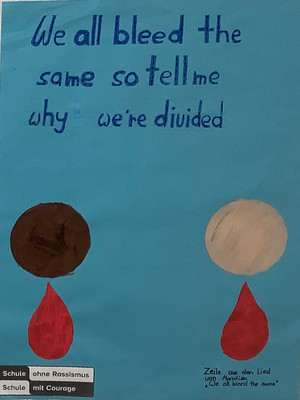 We all bleed the
same so tell me
why we're divided
Schule ohne Rassismus
Schule mit Courage
Zeile aus dem Lied
von Mandisa
„We all bleed the same"